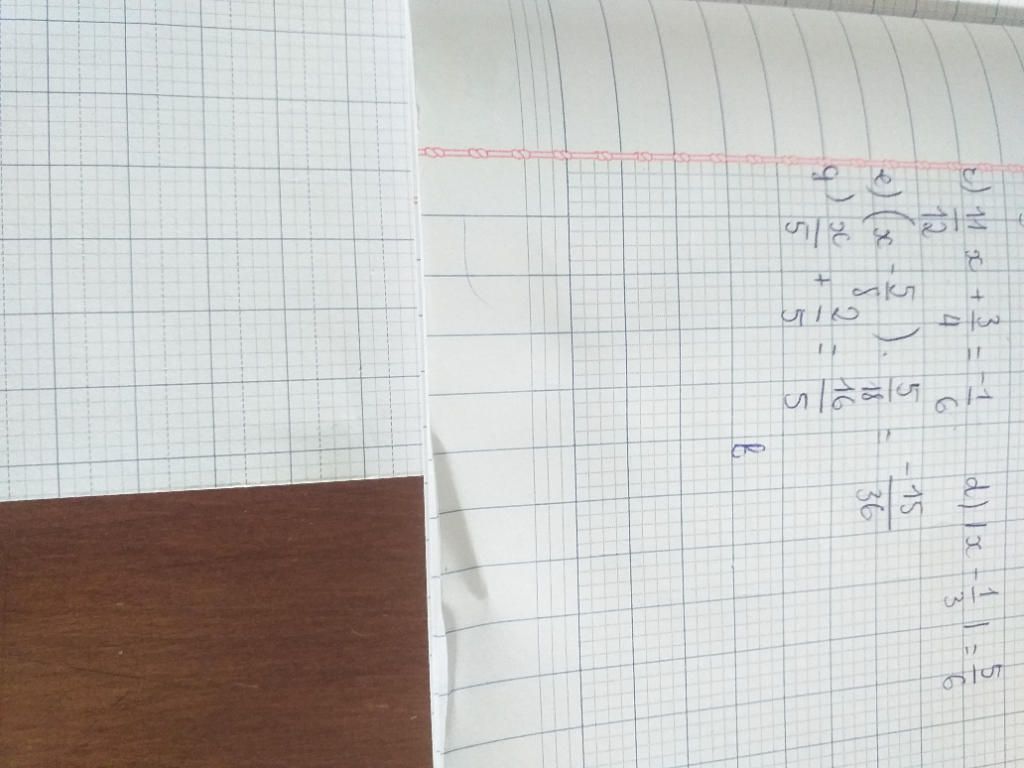 c) 11/12 x + 3/4 = -1/6 d) |x - 1/3| = 5/6
e) (x - 5/8) . 5/18 = -15/36
g) x/5 + 2/5 = 16/5
b